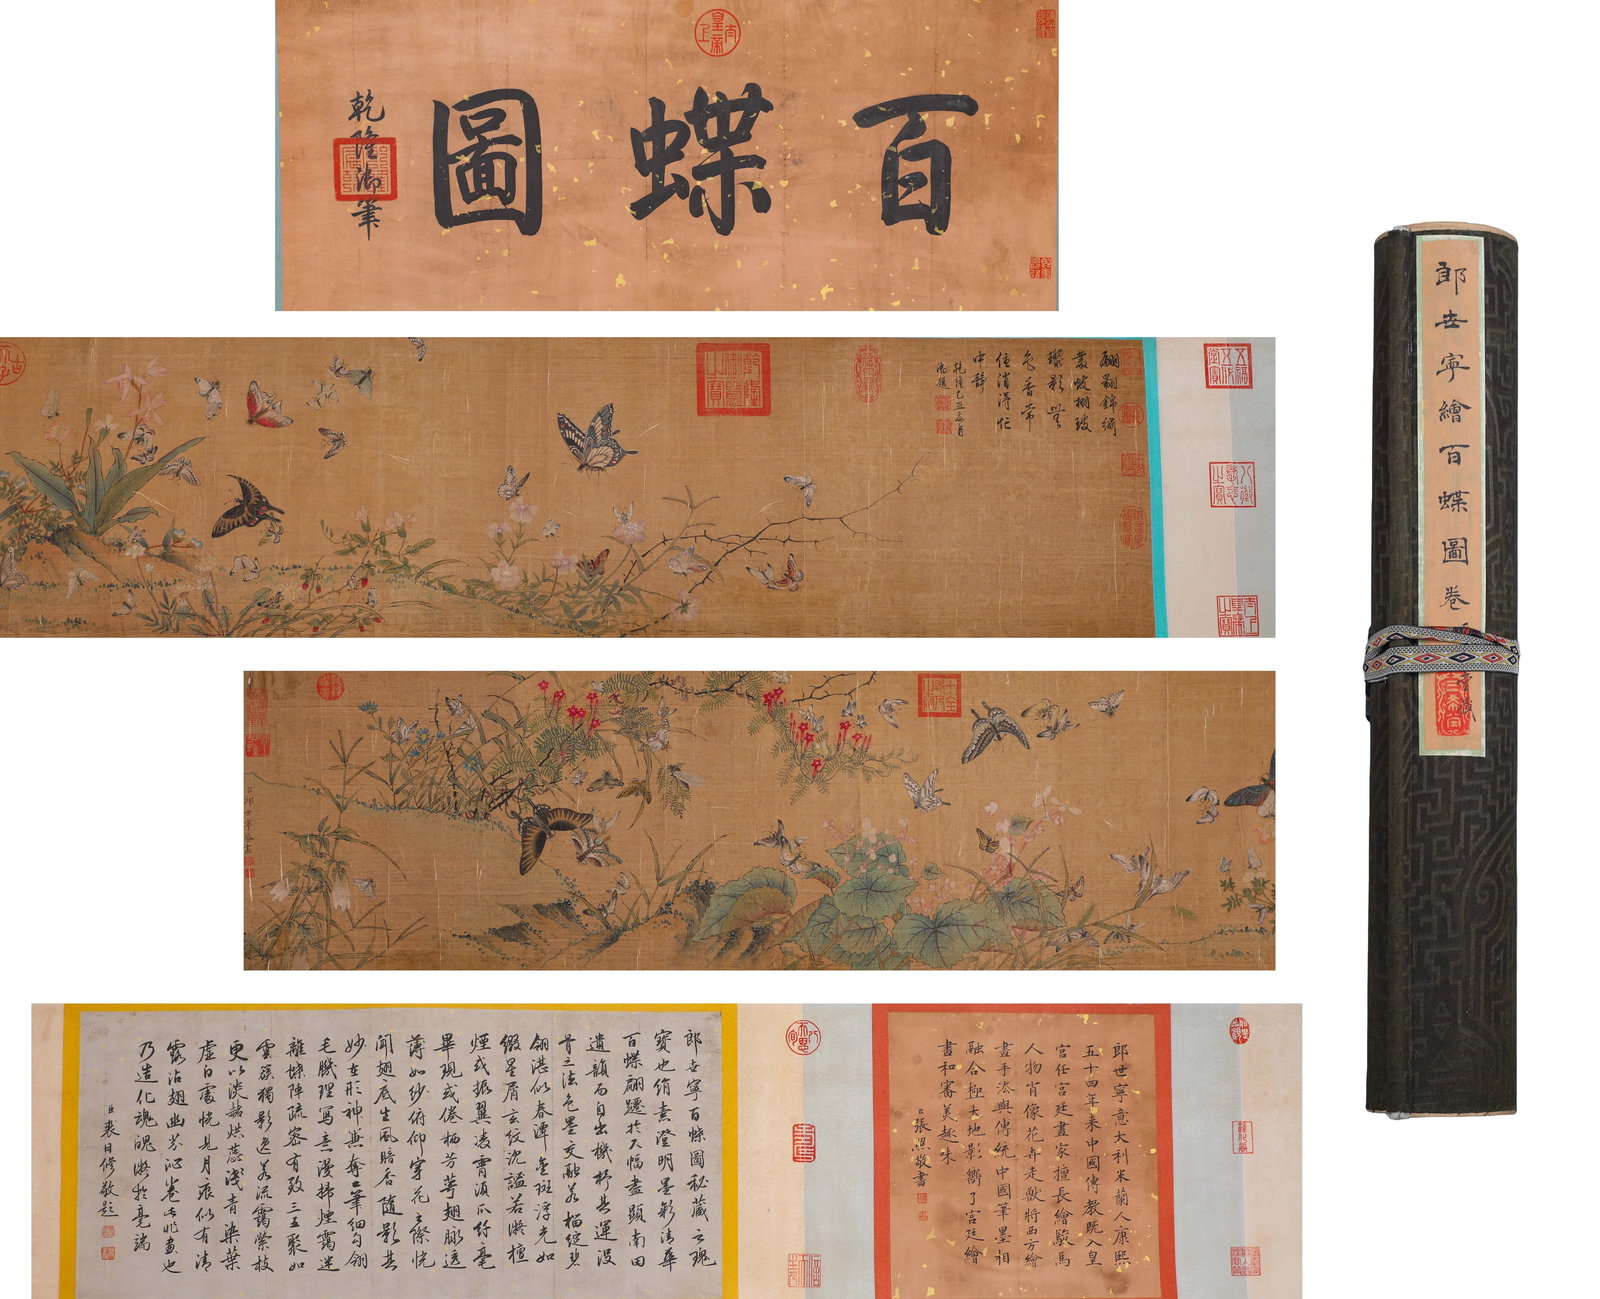 百蝶圖
乾隆御筆
翩翩錦繡
叢蛺栩玻
瓈影
色香常
住消得忙
中靜
乾隆乙丑
御題
臣郎世寧恭畫
郎世寧繪百蝶圖卷
郎世寧意大利米蘭人康熙
五十四年来中國傳教既入皇
宫任宫廷畫家擅長繪駿馬
人物肖像花卉走獸將西方繪
畫手法與傳統中國筆墨相
融合極大地影響了宫廷繪
畫和審美趣味
臣張照敬書
郎世寧百蝶圖秘藏之瑰
寶也绡素澄明墨彩清華
百蝶翩躚於尺幅盡顯南田
遺韻而自出機杼其運没
骨之法色墨交融若榴绽碧
翎湛似春潭金斑浮光如
缀星屑玄紋沉謐若凝檀
煙或振翼凌霄須爪纤毫
畢現或倦栖芳萼翅脈透
薄如纱俯仰穿花之際恍
聞翅底生風暗香隨影其
妙在形神兼奪工筆细勾翎
毛腠理寫意漫掃煙靄迷
離蝶陣疏密有致三五聚如
雲蓊獨影逸若流靄縈枝
更以淡赭烘蕊淺青染葉
虚白處恍見月痕似有清
露沾翅幽芬沁卷此非畫也
乃造化魂魄凝於毫端
臣裘日修敬題